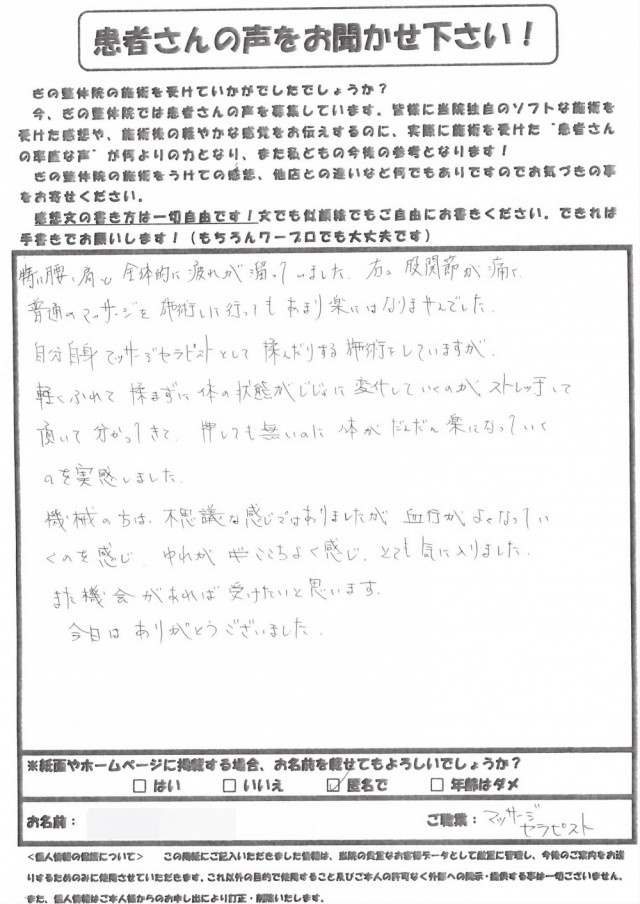 患者さんの声をお聞かせ下さい！
ぎの整体院の施術を受けていかがでしたでしょうか？
今、ぎの整体院では患者さんの声を募集しています。皆様に当院独自のソフトな施術を
受けた感想や、施術後の軽やかな感覚をお伝えするのに、実際に施術を受けた“患者さん
の率直な声”が何よりの力となり、また私どもの今後の参考となります！
ぎの整体院の施術をうけての感想、他店との違いなど何でもありですのでお気づきの事
をお寄せください。
感想文の書き方は一切自由です！文でも似顔絵でもご自由にお書きください。できれば
手書きでお願いします！（もちろんワープロでも大丈夫です）
特に腰、肩も全体的に疲れが溜っていました。右の股関節が痛く、
普通のマッサージを施術しに行ってもあまり楽にはなりませんでした。
自分自身マッサージセラピストとして揉んだりする施術をしていますが、
軽くふれて揉まずに体の状態がじょじょに変化していくのが、ストレッチして
頂いて分かってきて、押しても無いのに体がだんだん楽になっていく
のを実感しました。
機械の方は、不思議な感じではありましたが血行がよくなってい
くのを感じ、ゆれが ここちよく感じ、とても気に入りました。
また機会があれば受けたいと思います。
今日はありがとうございました。
※紙面やホームページに掲載する場合、お名前を載せてもよろしいでしょうか？
□ はい □ いいえ ☑ 匿名で □ 年齢はダメ
お名前： ご職業：マッサージ
セラピスト
＜個人情報の保護について＞ この用紙にご記入いただきました情報は、当院の貴重なお客様データとして厳重に管理し、今後のご案内をお送
りするためのみに使用させていただきます。これ以外の目的で使用すること及びご本人の許可なく外部への開示・提供する事は一切ございません。
また、個人情報はご本人様からのお申し出により訂正・削除いたします。